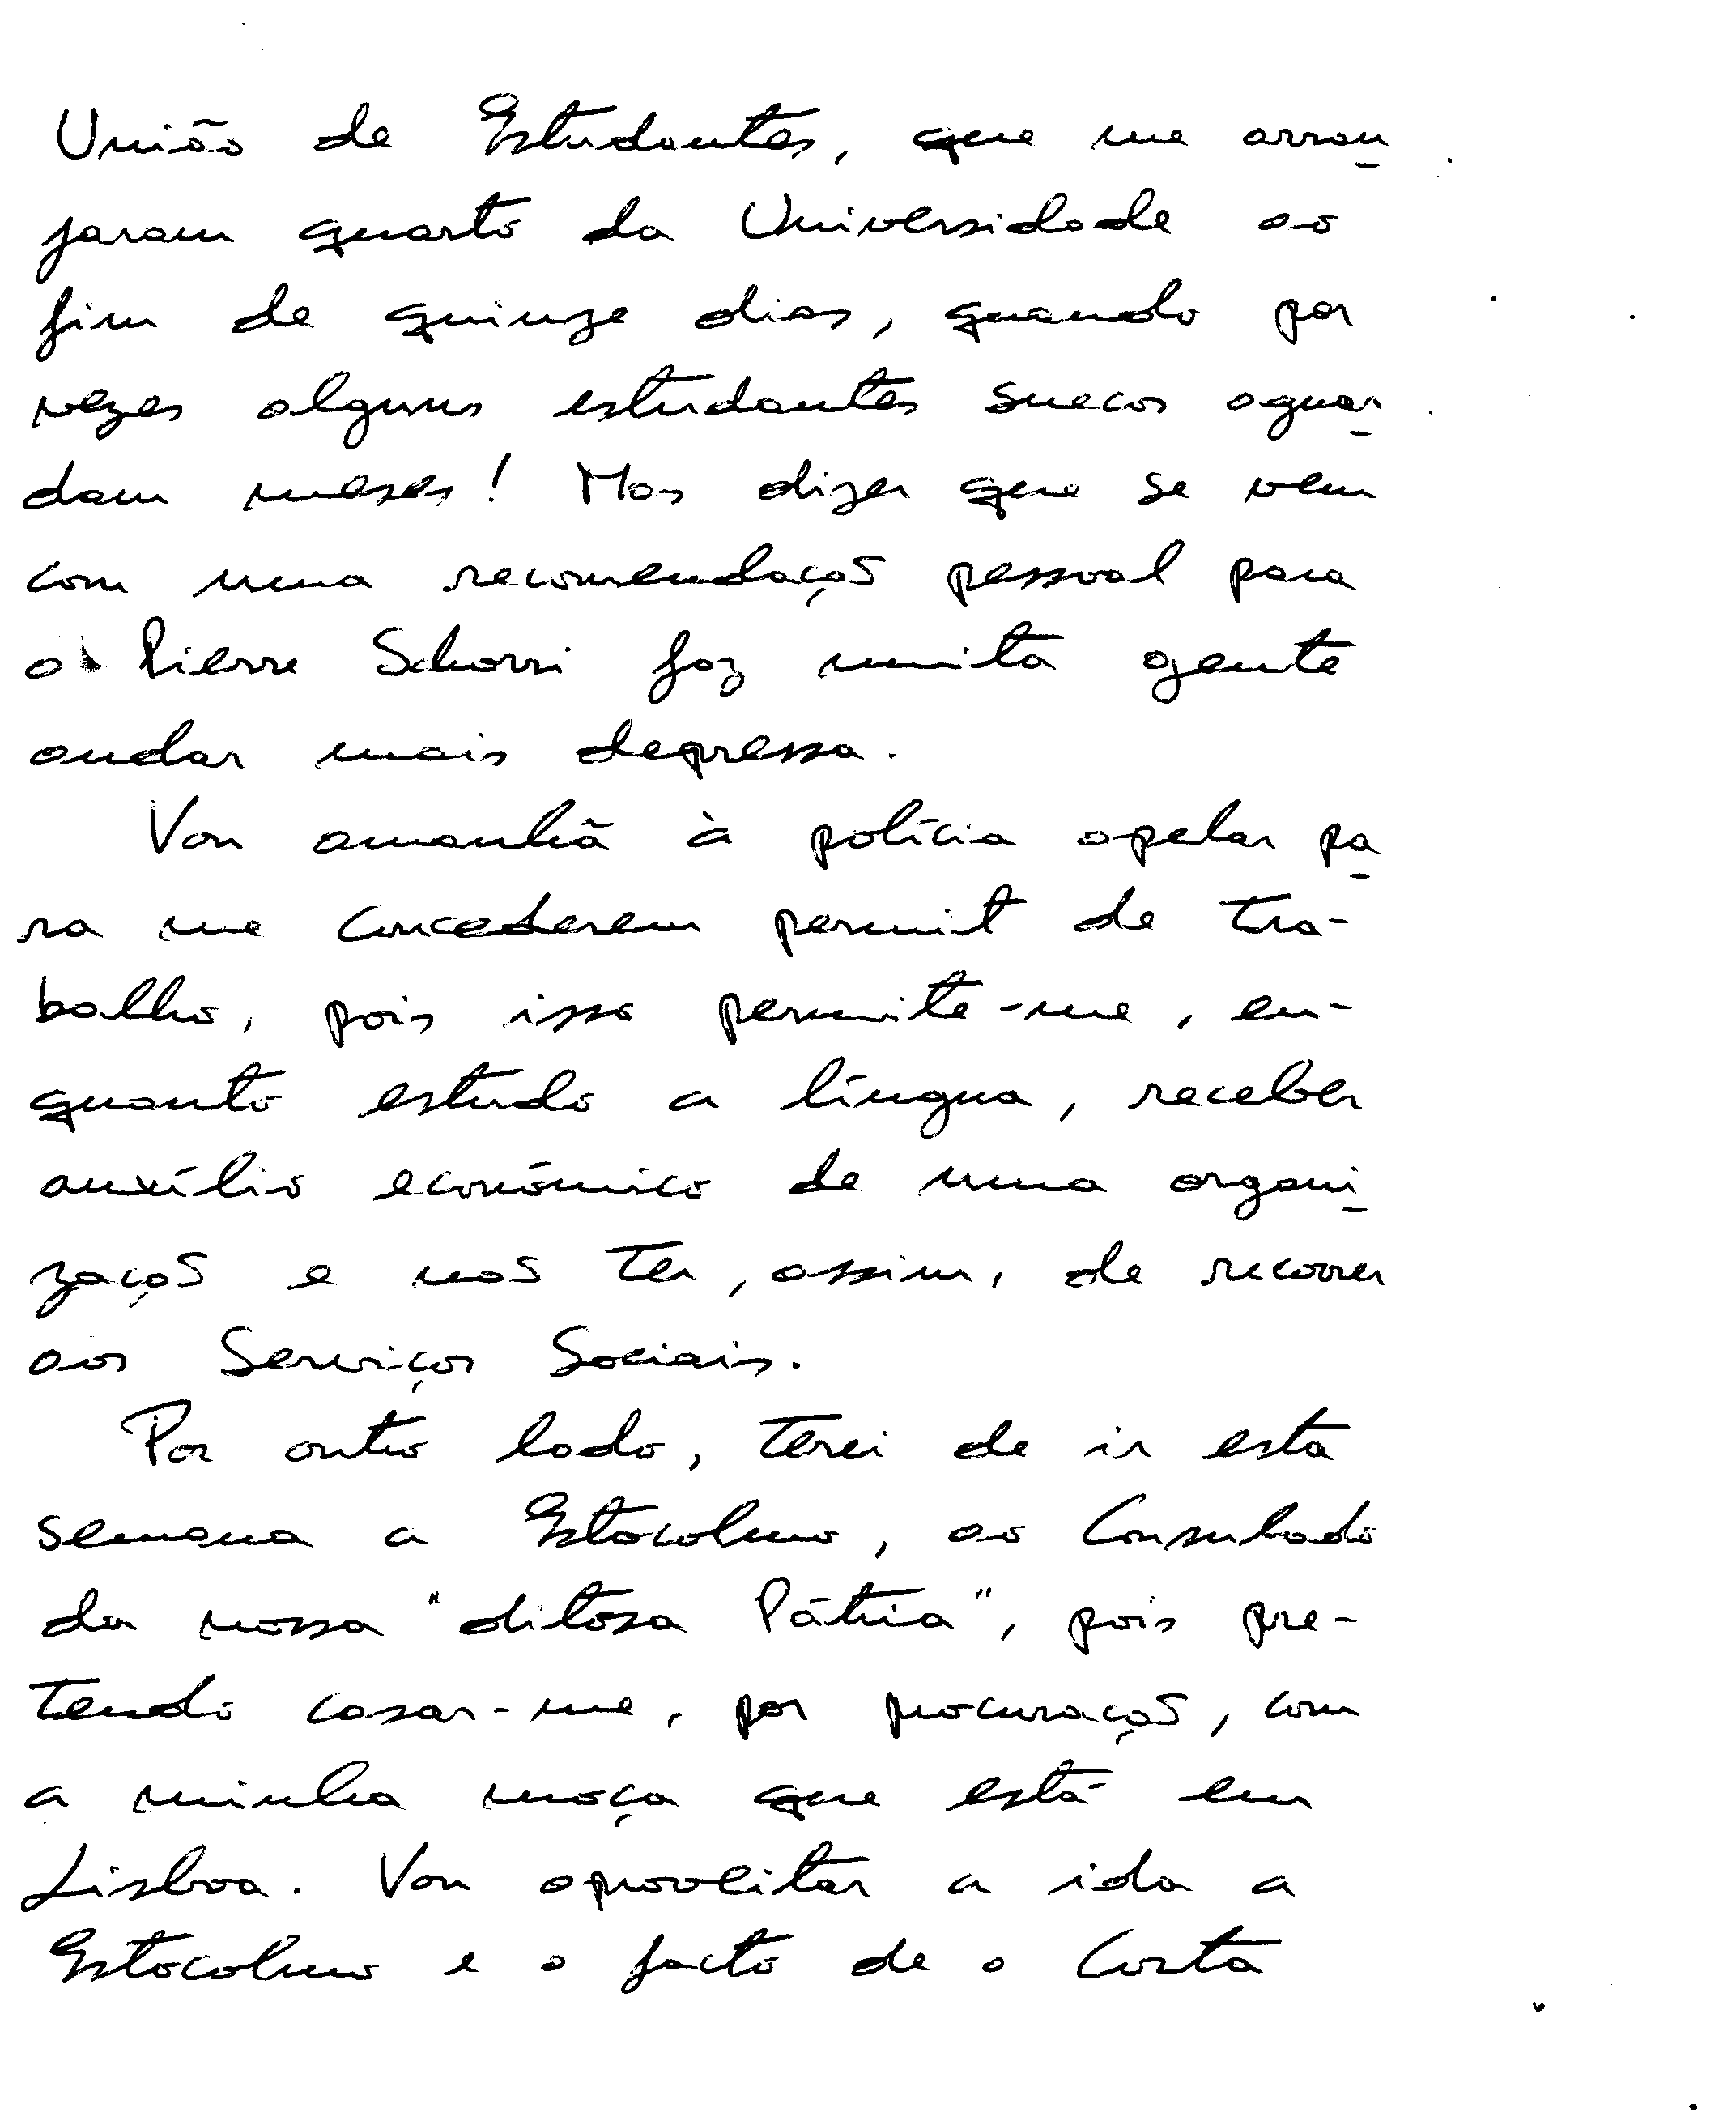 União de Estudantes, que me arran
jaram quarto da Universidade ao
fim de quinze dias, quando por
vezes alguns estudantes suecos aguar
dam meses! Mas dizer que se vem
com uma recomendação pessoal para
o Pierre Schorri faz muita gente
andar mais depressa.
Vou amanhã à polícia apelar pa
ra me concederem permit de tra-
balho, pois isso permite-me, en-
quanto estudo a língua, receber
auxílio económico de uma organi
zação e não ter, assim, de recorrer
aos Serviços Sociais.
Por outro lado, terei de ir esta
semana a Estocolmo, ao Consulado
da nossa "ditosa Pátria", pois pre-
tendo casar-me, por procuração, com
a minha moça que está em
Lisboa. Vou aproveitar a ida a
Estocolmo e o facto de o Costa